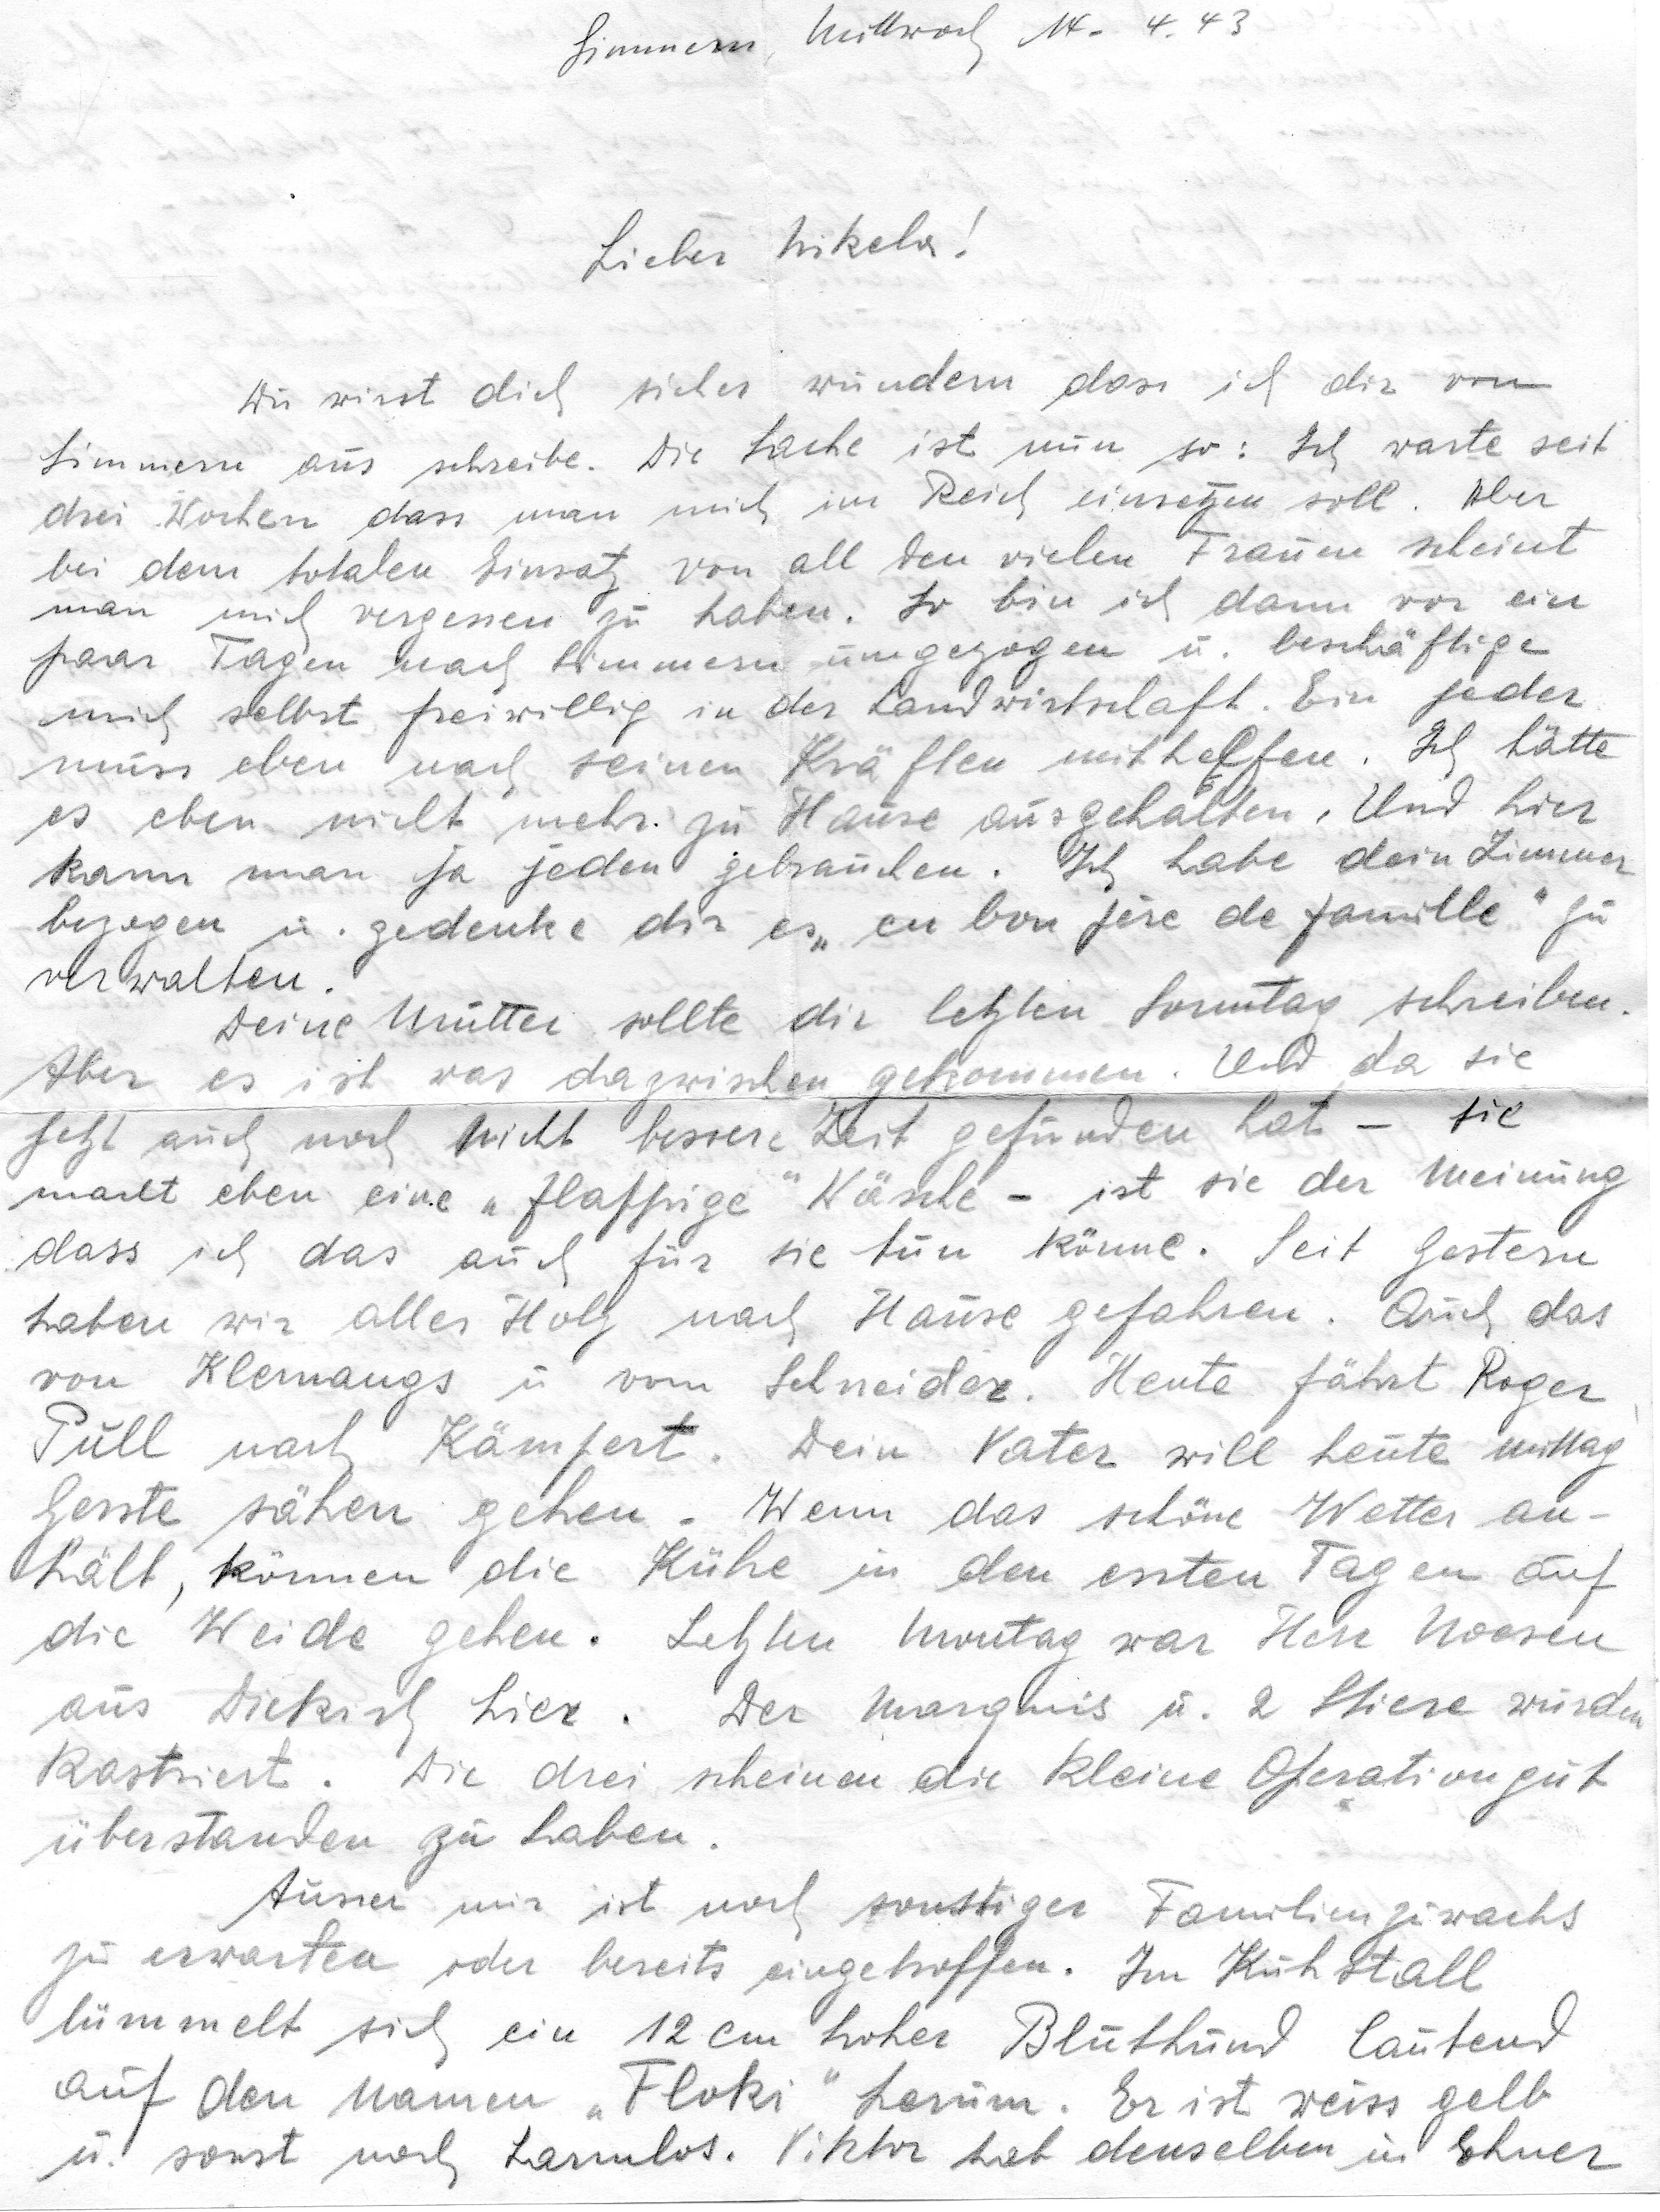 Simmern, Mittwoch 14. 4. 43
Lieber Nikela!
Du wirst dich sicher wundern dass ich dir von
Simmern aus schreibe. Die Sache ist nun so: Ich warte seit
drei Wochen dass man mich im Reich einsetzen soll. Aber
bei dem totalen Einsatz von all den vielen Frauen scheint
man mich vergessen zu haben. So bin ich dann vor ein
paar Tagen nach Simmern umgezogen u. beschäftige
mich selbst freiwillig in der Landwirtschaft. Ein jeder
muss eben nach seinen Kräften mithelfen. Ich hätte
es eben nicht mehr zu Hause ausgehalten. Und hier
kann man ja jeden gebrauchen. Ich habe dein Zimmer
bezogen u. gedenke dir es „en bon père de famille" zu
verwalten.
Deine Mutter sollte dir letzten Sonntag schreiben.
Aber es ist was dazwischen gekommen. Und da sie
jetzt auch noch nicht bessere Zeit gefunden hat - sie
macht eben eine „flappige" Wäsche - ist sie der Meinung
dass ich das auch für sie tun könne. Seit Gestern
haben wir alles Holz nach Hause gefahren. Auch das
von Klernangs u vom Schneider. Heute fährt Roger
Pull nach Kämpert. Dein Vater will heute mittag
Gerste sähen gehen. Wenn das schöne Wetter an-
hält, können die Kühe in den ersten Tagen auf
die Weide gehen. Letzten Montag war Herr Noesen
aus Diekirch hier. Der Marquis u. 2 Stiere wurden
kastriert. Die drei scheinen die kleine Operation gut
überstanden zu haben.
Ausser mir ist noch sonstiger Familienzuwachs
zu erwarten oder bereits eingetroffen. Im Kuhstall
lümmelt sich ein 12 cm hoher Bluthund lautend
auf den Namen „Floki" herum. Er ist weiss gelb
u. sonst noch harmlos. Viktor hat denselben in Ehner